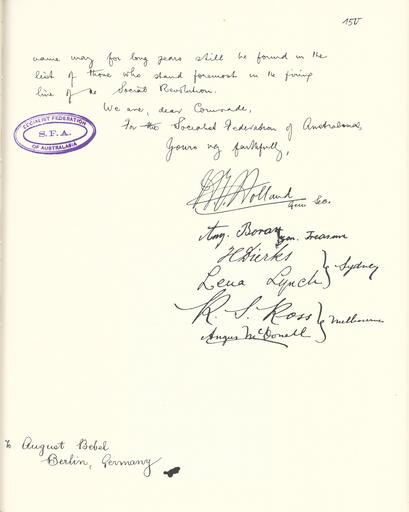 15V
name may for long years still be found in the
list of those who stand foremost in the firing
line of the Social Revolution.
We are, dear Comrade,
For the Socialist Federation of Australasia,
Yours vy faithfully,
SOCIALIST FEDERATION
S.F.A.
OF AUSTRALASIA
H. E. Holland
Gen Sec.
Aug. Boray
Gen. Treasurer
H Dierks
Lena Lynch
Sydney
R. S. Ross
Angus McDonell
Melbourne
To August Bebel
Berlin, Germany